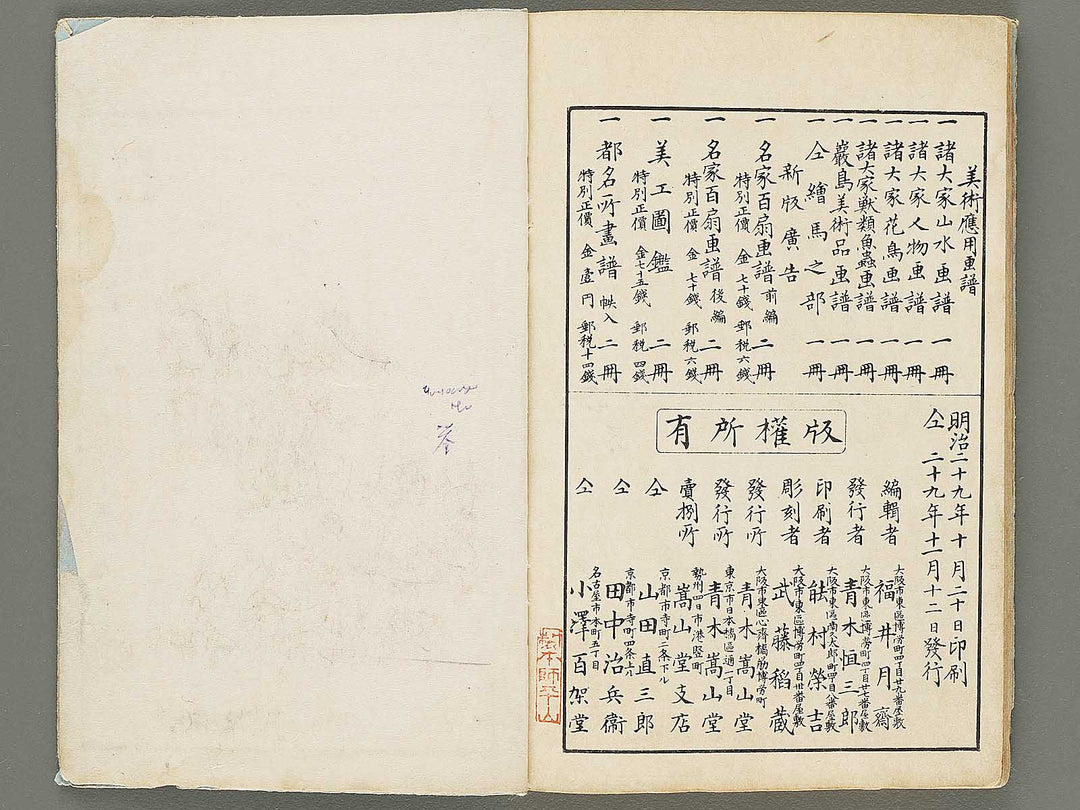 美術應用画譜
一 諸大家山水画譜 一冊
一 諸大家人物画譜 一冊
一 諸大家花鳥画譜 一冊
一 諸大家獣類魚蟲画譜 一冊
一 嚴島美術品画譜 一冊
一 仝 繪馬之部 一冊
新版廣告
一 名家百扇画譜 前編 二冊
特別正價 金七十錢 郵税六錢
一 名家百扇画譜 後編 二冊
特別正價 金七十錢 郵税六錢
一 美工圖鑑 二冊
特別正價 金七十五錢 郵税四錢
一 都名所畫譜 帙入 二冊
特別正價 金壹円 郵税十四錢
明治二十九年十月二十日印刷
仝 二十九年十一月十二日發行
版權所有
編輯者 大阪市東區博労町四丁目廿九番屋敷 福井月齋
發行者 大阪市東區博労町四丁目廿七番屋敷 青木恒三郎
印刷者 大阪市東區南久太郎町四丁目八番屋敷 能村榮吉
彫刻者 大阪市東區博労町四丁目廿番屋敷 武藤稻蔵
發行所 大阪市東區心斎橋筋博労町 青木嵩山堂
發行所 東京市日本橋區通一丁目 青木嵩山堂
賣捌所 勢州四日市港竪町 嵩山堂支店
仝 京都市寺町二条下ル 山田直三郎
仝 京都市寺町四条上ル 田中治兵衞
仝 名古屋市本町五丁目 小澤百架堂
製本師平山